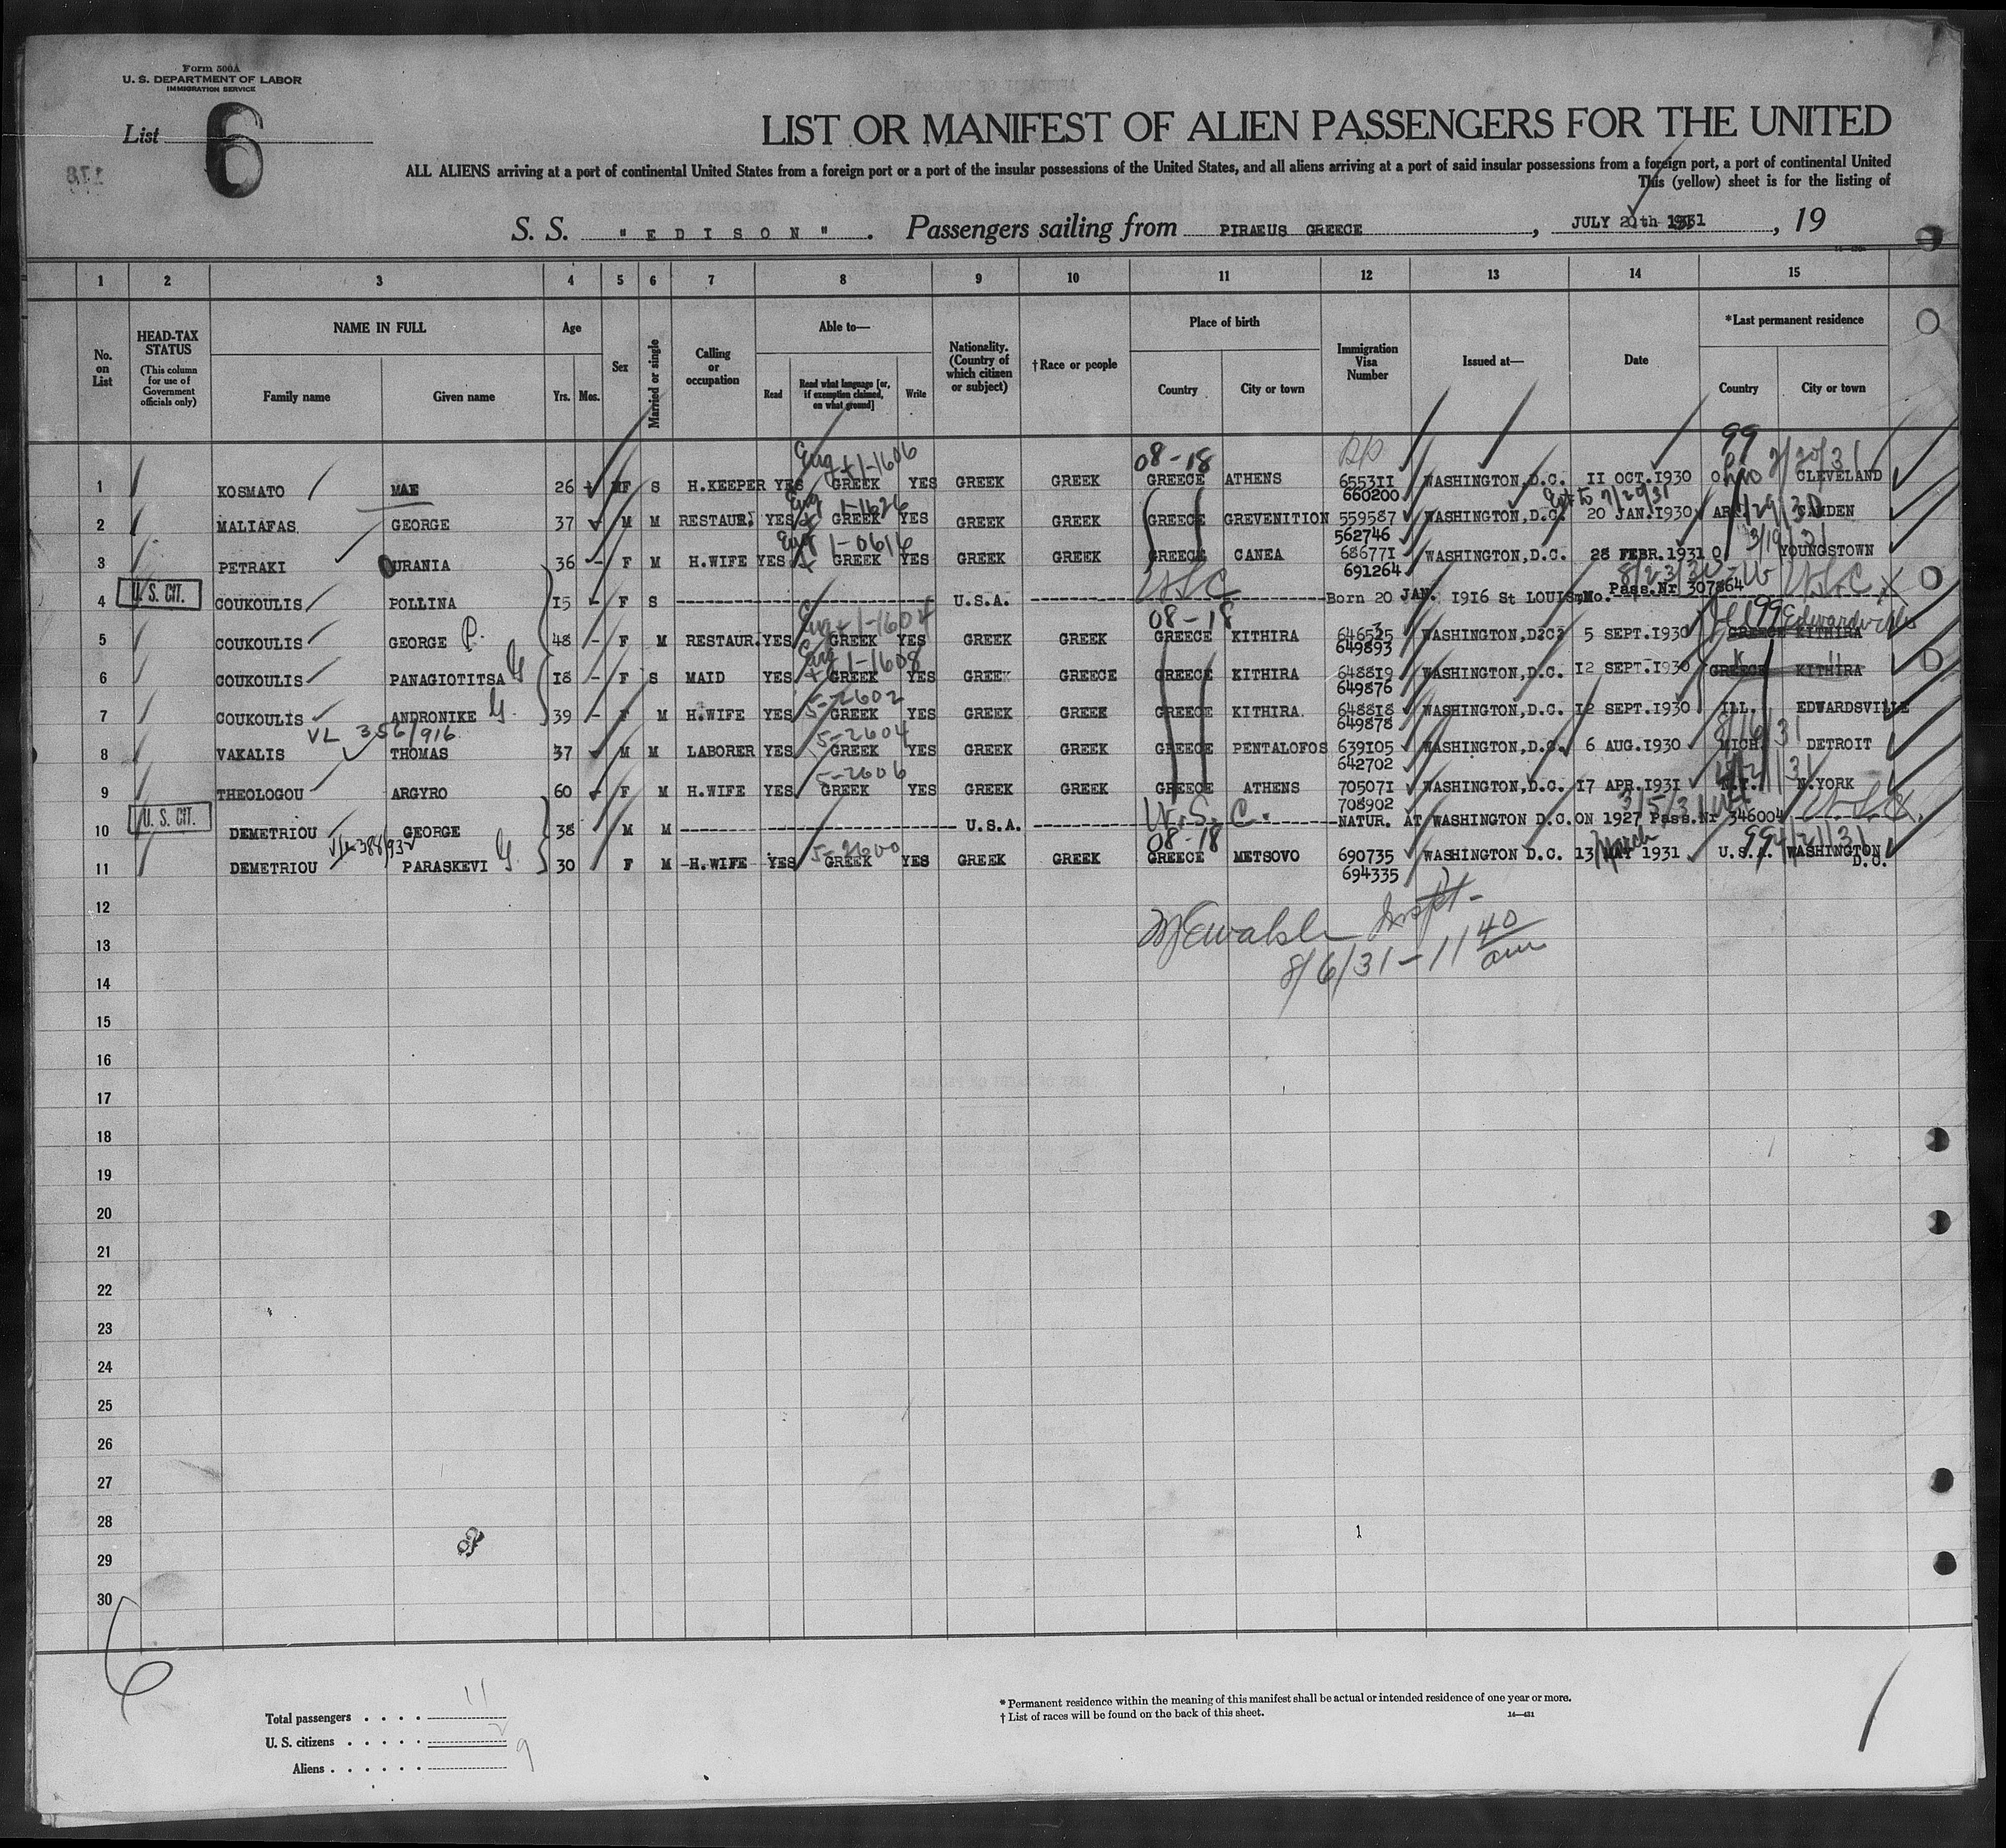 Form 500A
U. S. DEPARTMENT OF LABOR
IMMIGRATION SERVICE
List 6
LIST OR MANIFEST OF ALIEN PASSENGERS FOR THE UNITED
ALL ALIENS arriving at a port of continental United States from a foreign port or a port of the insular possessions of the United States, and all aliens arriving at a port of said insular possessions from a foreign port, a port of continental United
This (yellow) sheet is for the listing of
S. S. "EDISON". Passengers sailing from PIRAEUS GREECE, JULY 20th 1931, 19
1 2 3 4 5 6 7 8 9 10 11 12 13 14 15
No. on List
HEAD-TAX STATUS (This column for use of Government officials only)
NAME IN FULL
Family name Given name
Age
Yrs. Mos.
Sex
Married or single
Calling or occupation
Able to—
Read Read what language [or, if exemption claimed, on what ground] Write
Nationality. (Country of which citizen or subject)
†Race or people
Place of birth
Country City or town
Immigration Visa Number
Issued at—
Date
*Last permanent residence
Country City or town
1 KOSMATO MAE 26 F S H.KEEPER YES Eng + 1-1606 GREEK YES GREEK GREEK 08-18 GREECE ATHENS 655311 660200 WASHINGTON,D.C. 11 OCT.1930 99 Ohio 7/20/31 CLEVELAND
2 MALIAFAS GEORGE 37 M M RESTAUR. YES Eng 1-1626 GREEK YES GREEK GREEK GREECE GREVENITION 559587 562746 WASHINGTON,D.C. Ext to 7/29/31 20 JAN.1930 AR. 1/29/30 CAMDEN
3 PETRAKI OURANIA 36 F M H.WIFE YES Eng 1-0616 GREEK YES GREEK GREEK GREECE CANEA 686771 691264 WASHINGTON,D.C. 28 FEBR.1931 O. 3/19/31 YOUNGSTOWN
4 U. S. CIT. COUKOULIS POLLINA 15 F S U.S.A. USC Born 20 JAN. 1916 St LOUIS,Mo. Pass.Nr 307864 U.S.C X
5 COUKOULIS GEORGE P. 48 F M RESTAUR. YES Eng + 1-1604 GREEK YES GREEK GREEK 08-18 GREECE KITHIRA 646525 3 649893 WASHINGTON,D.C. 5 SEPT.1930 Ill 99 Edwardsville GREECE KITHIRA
6 COUKOULIS PANAGIOTITSA G 18 F S MAID YES Eng + 1-1608 GREEK YES GREEK GREECE GREECE KITHIRA 648819 649876 WASHINGTON,D.C. 12 SEPT.1930 GREECE KITHIRA
7 COUKOULIS ANDRONIKE G. 39 F M H.WIFE YES 5-2602 GREEK YES GREEK GREEK GREECE KITHIRA 648818 649878 WASHINGTON,D.C. 12 SEPT.1930 ILL. EDWARDSVILLE
VL 356/916
8 VAKALIS THOMAS 37 M M LABORER YES 5-2604 GREEK YES GREEK GREEK GREECE PENTALOFOS 639105 642702 WASHINGTON,D.C. 6 AUG.1930 8/6/31 MICH. DETROIT
9 THEOLOGOU ARGYRO 60 F M H.WIFE YES 5-2606 GREEK YES GREEK GREEK GREECE ATHENS 705071 708902 WASHINGTON,D.C. 17 APR.1931 N.Y. N.YORK
10 U. S. CIT. DEMETRIOU GEORGE 38 M M U.S.A. U.S.C. NATUR. AT WASHINGTON D.C.ON 1927 Pass.Nr 346004 U.S.C.
11 DEMETRIOU PARASKEVI G. 30 F M H.WIFE YES GREEK YES GREEK GREEK 08-18 GREECE METSOVO 690735 694335 WASHINGTON D.C. 13 MAY March 1931 99 U.S.A. WASHINGTON D.C.
12
Inspt-
13
8/6/31 - 11 40 am
14
15
16
17
18
19
20
21
22
23
24
25
26
27
28 1
29
30
6
Total passengers . . . . 11
U. S. citizens . . . . . 2
Aliens . . . . . . 9
* Permanent residence within the meaning of this manifest shall be actual or intended residence of one year or more.
† List of races will be found on the back of this sheet.
14—431